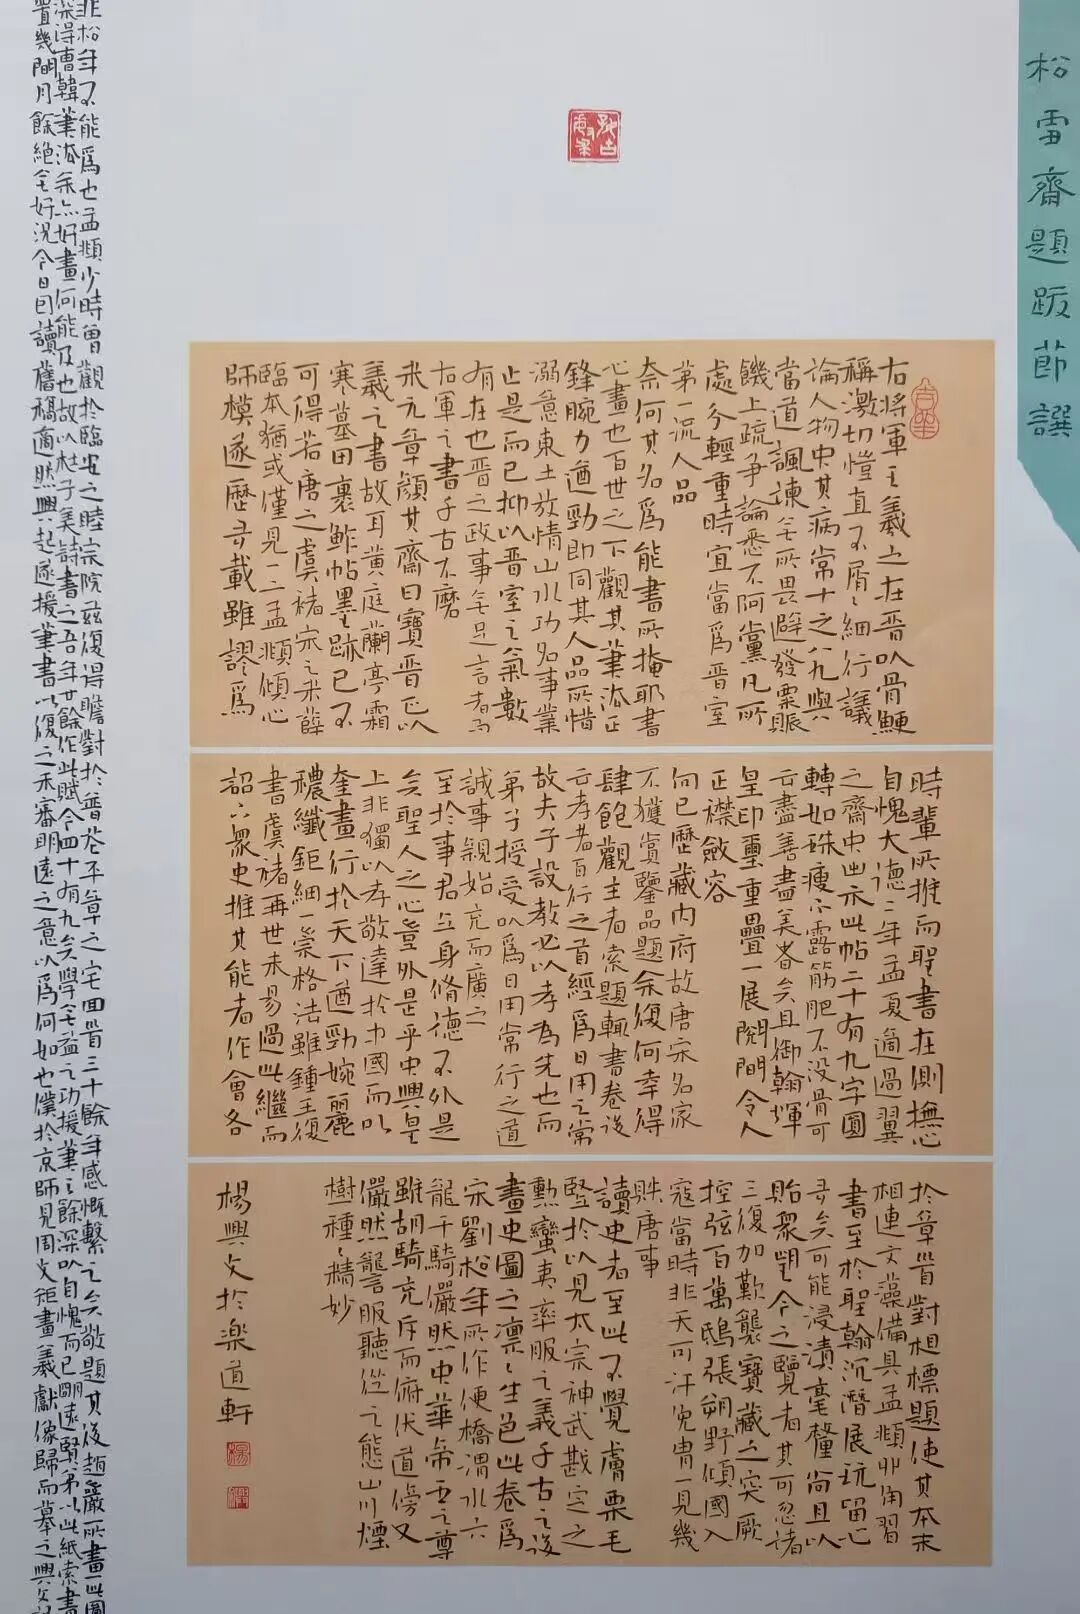 松雪齋題跋節譔
右將軍王羲之在晋以骨鯁
稱激切愷直不屑々細行議
論人物中其病常十之八九與
當道諷諫無所畏避發粟賑
饑上疏爭論悉不阿黨凡所
處分輕重時宜當為晉室
第一流人品
奈何其名為能書所掩耶書
心畫也百世之下觀其筆法正
鋒腕力遒勁即同其人品所惜
溺意東土放情山水功名事業
止是而已抑以晋室之氣數
有在也晋之政事無足言者而
右軍之書千古不磨
米元章顏其齋曰寶晋正以
羲之書故耳黄庭蘭亭霜
寒墓田裹鮓帖墨跡已不
可得若唐之虞褚宋之米薛
臨本猶或僅見一二孟頫傾心
師模遂歷寻載雖謬為
時輩所推而聖書在側撫心
自愧大德二年孟夏適過翼
之齋中出示此帖二十有九字圓
轉如珠瘦不露筋肥不没骨可
云盡善盡美者矣且御翰煇
皇印璽重疊一展閲間令人
正襟斂容
向已歷藏内府故唐宋名家
不獲賞鑒品題余復何幸得
肆飽觀主者索題輒書卷後
云孝者百行之首經為日用之常
故夫子設教必以孝為先也而
弟子授受以為日用常行之道
誠事親始充而廣之
至於事君立身脩德不外是
矣聖人之心豈外是乎中興皇
上非獨以孝敬達於中國而以
奎畫行於天下遒勁婉麗
穠纖鉅細一崇格法雖鍾王復
書虞褚再世未易過此繼而
詔六衆史推其能者作會各
於章首對相標題使其本末
相連文藻備具孟頫丱角習
書至於聖翰沉潛展玩留心
寻矣可能浸漬毫釐尚且以
貽衆望今之覽者其可忽諸
三復加歎襲寶藏之突厥
控弦百萬鴟張朔野傾國入
寇當時非天可汗免胄一見幾
敗唐事
讀史者至此不覺膚栗毛
竪於以見太宗神武戡定之
勲蠻夷率服之義千古之後
畫史圖之凛々生色此卷為
宋劉松年所作便橋渭水六
龍千騎儼然中華帝王之尊
雖胡騎充斥而俯伏道傍又
儼然讋服聽從之態山川煙
樹種々精妙
楊興文於樂道軒
非松年不能為也孟頫少時曾觀於臨安之睦宗院茲復得瞻對於普花平章之宅回首三十餘年感慨繫之矣敬題其後趙嚴所畫此圖
深得曹韓筆法余亦好畫何能及也故以杜子美詩書之吾年廿餘作此賦今四十有九矣學無益之功援筆之餘深以自愧而已明遠賢弟以此紙索書
置幾間月餘絶無好況今日因讀舊稿適然興起遂援筆書以復之未審明遠之意以為何如也僕於京師見周文矩畫羲獻像歸而摹之興文